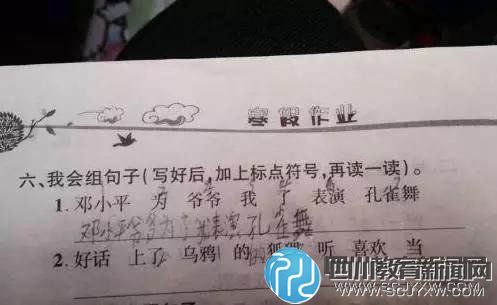 寒假作业
六、我会组句子(写好后,加上标点符号,再读一读)。
1. 邓小平 为 爷爷 我 了 表演 孔雀舞
邓小平爷爷为了我表演孔雀舞
2. 好话 上了 乌鸦 的 狐狸 听 喜欢 当
四川教育新闻网
WWW.SCJYXW.COM